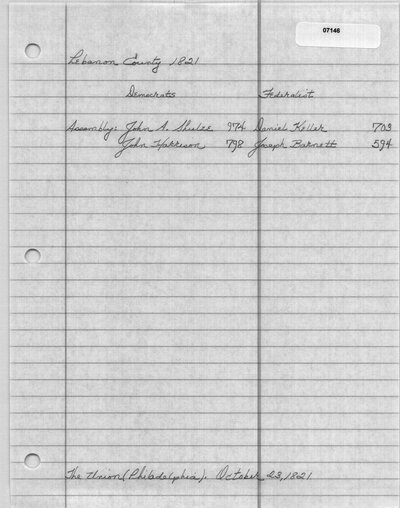 07146
Lebanon County 1821
Democrats Federalist
Assembly: John A. Shulze 974 Daniel Keller 703
John Harrison 798 Joseph Barnett 594
The Union (Philadelphia). October 23, 1821